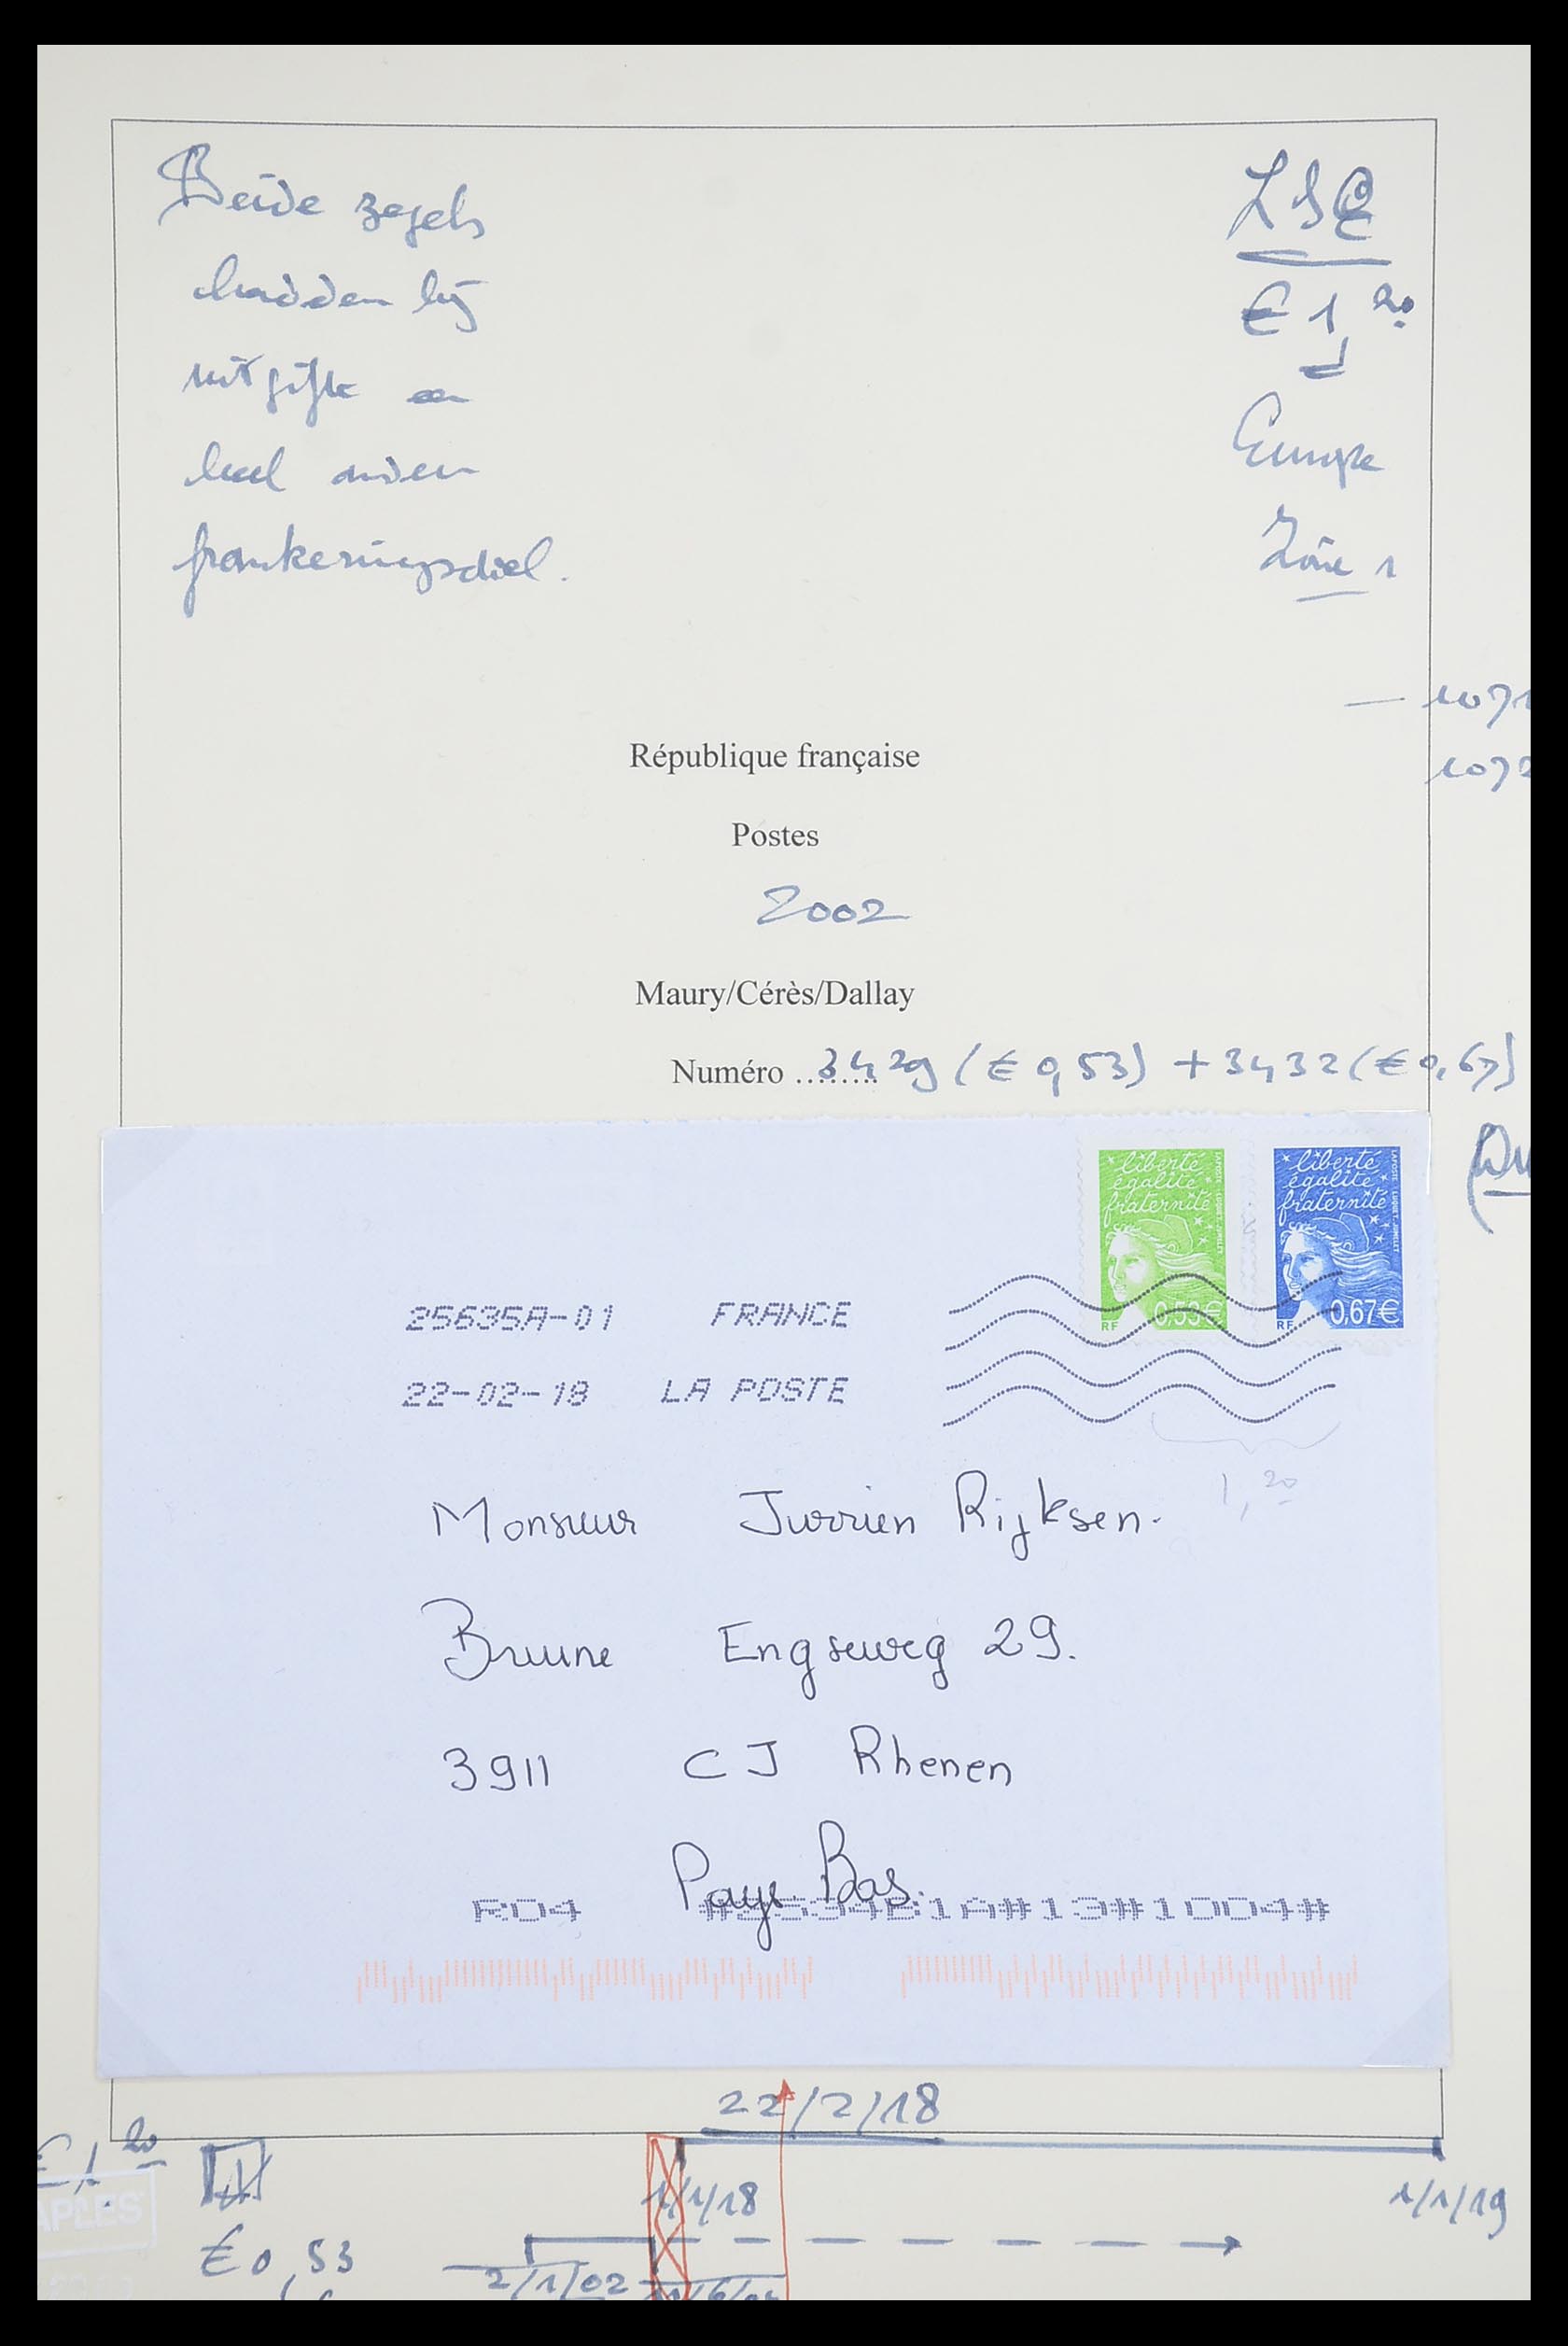 Beide zegels
hadden bij
uitgifte een
heel ander
frankeringsdoel.
LSE
€ 1,20
Europe
Zône 1
— 1071
1072
République française
Postes
2002
Maury/Cérès/Dallay
Numéro ........ 3429 (€ 0,53) + 3432 (€ 0,67)
liberté
égalité
fraternité
LA POSTE
LUQUET. JUMELET
RF 0,53€
liberté
égalité
fraternité
LA POSTE
LUQUET. JUMELET
RF 0,67€
25635A-01 FRANCE
22-02-18 LA POSTE
1,20
Monsieur Jurrien Rijksen.
Bruine Engseweg 29.
3911 CJ Rhenen
Pays Bas.
RO4
22/2/18
€ 1,20
1/1/18
1/1/19
€ 0,53
2/1/02